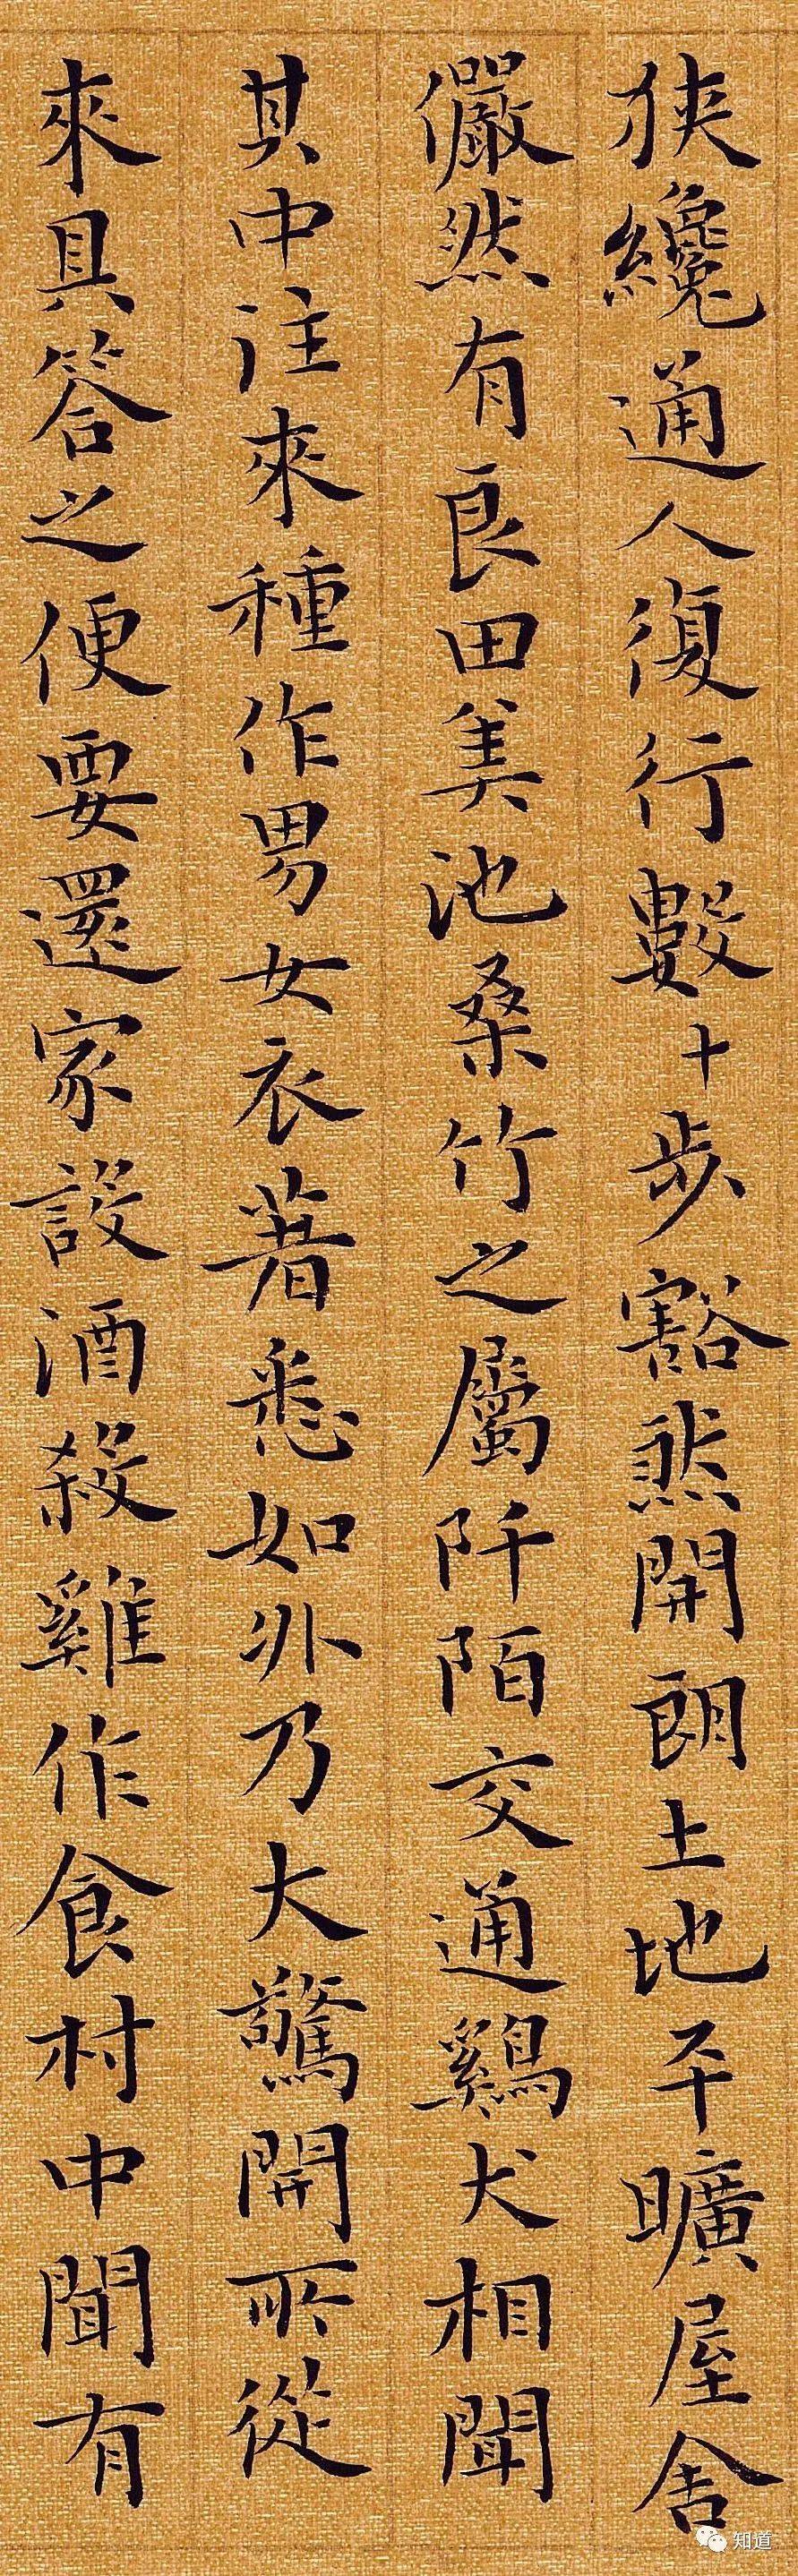 狹纔通人復行數十步豁然開朗土地平曠屋舍
儼然有良田美池桑竹之屬阡陌交通鷄犬相聞
其中往來種作男女衣著悉如外乃大驚開所從
來具答之便要還家設酒殺雞作食村中聞有
知道